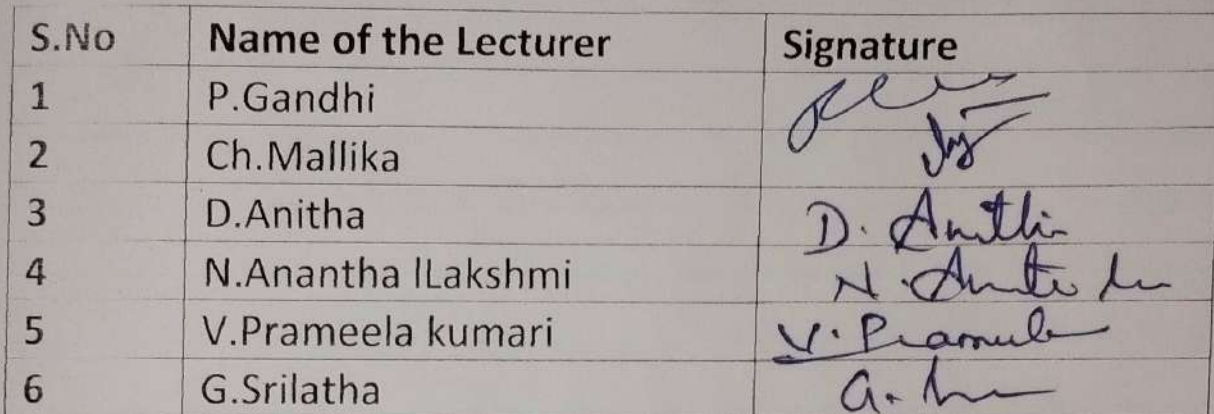 S.No Name of the Lecturer Signature
1 P.Gandhi
2 Ch.Mallika
3 D.Anitha D.
4 N.Anantha lLakshmi N.
5 V.Prameela kumari V.
6 G.Srilatha G.